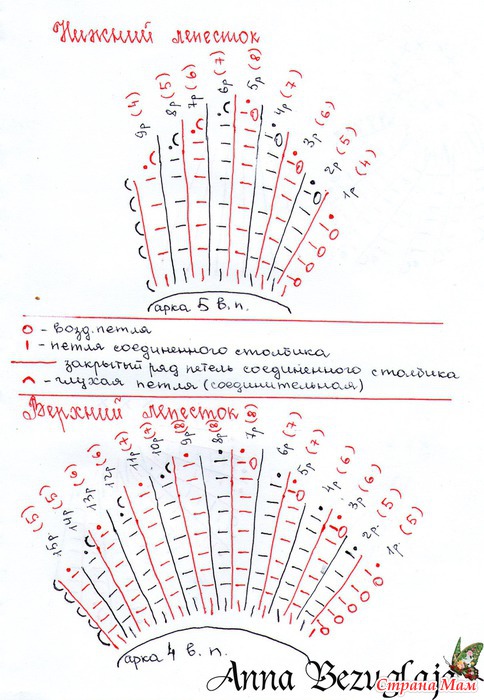 Нижний лепесток
9р (4)
8р (5)
7р (6)
6р (7)
5р (8)
4р (7)
3р (6)
2р (5)
1р (4)
арка 5 в.п.
- возд. петля
- петля соединенного столбика
- закрытый ряд петель соединенного столбика
- глухая петля (соединительная)
Верхний лепесток
15р (5)
14р (5)
13р (6)
12р (6)
11р (7)
10р (7)
9р (8)
8р (8)
7р (8)
6р (7)
5р (7)
4р (6)
3р (6)
2р. (5)
1р. (5)
арка 4 в.п.
Anna Bezuglaja
Страна Мам